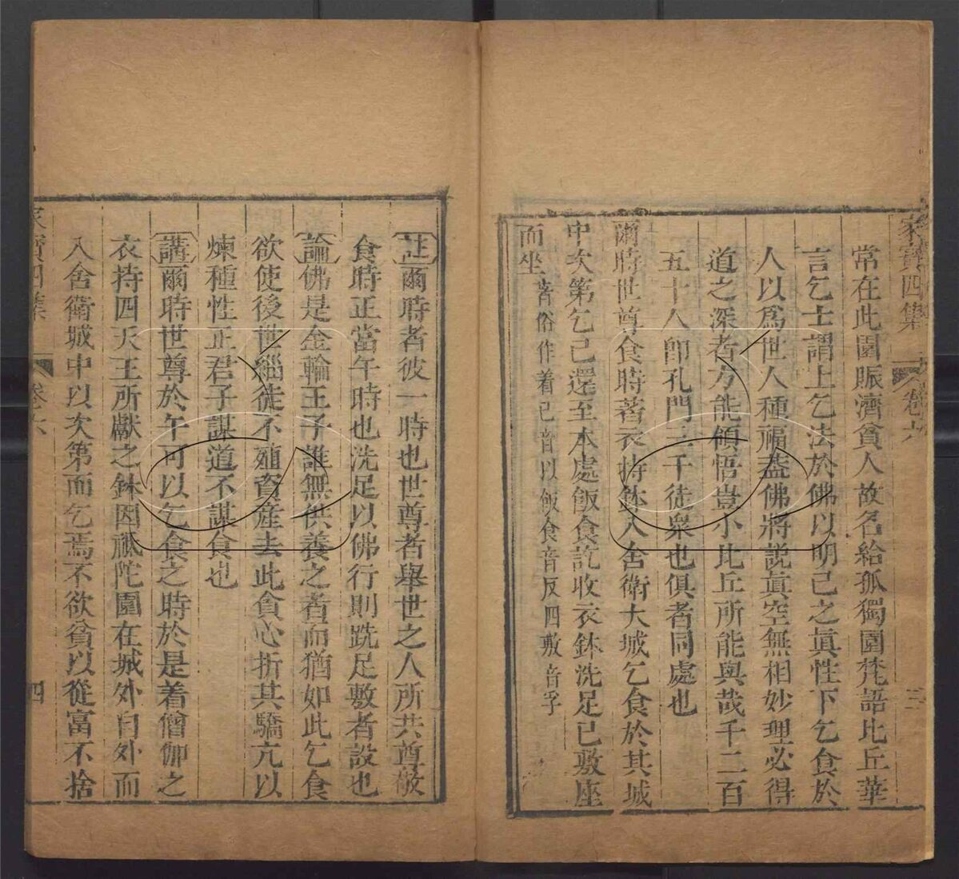 家寶四集 卷六 三
常在此園賑濟貧人故名給孤獨園梵語比丘華
言乞士謂上乞法於佛以明己之眞性下乞食於
人以爲世人種福蓋佛將説眞空無相妙理必得
道之深者方能領悟豈小比丘所能與哉千二百
五十人即孔門三千徒衆也俱者同處也
爾時世尊食時著衣持鉢入舍衛大城乞食於其城
中次第乞已還至本處飯食訖收衣鉢洗足已敷座
而坐 著俗作着已音以飯食音反四敷音孚
註爾時者彼一時也世尊者舉世之人所共尊敬
食時正當午時也洗足以佛行則跣足敷者設也
論佛是金輪王子誰無供養之者而猶如此乞食
欲使後世緇徒不殖資産去此貪心折其驕亢以
煉種性正君子謀道不謀食也
講爾時世尊於午可以乞食之時於是着僧伽之
衣持四天王所獻之鉢因祇陀園在城外自外而
入舍衛城中以次第而乞焉不欲貧以從富不捨
家寶四集 卷六 四